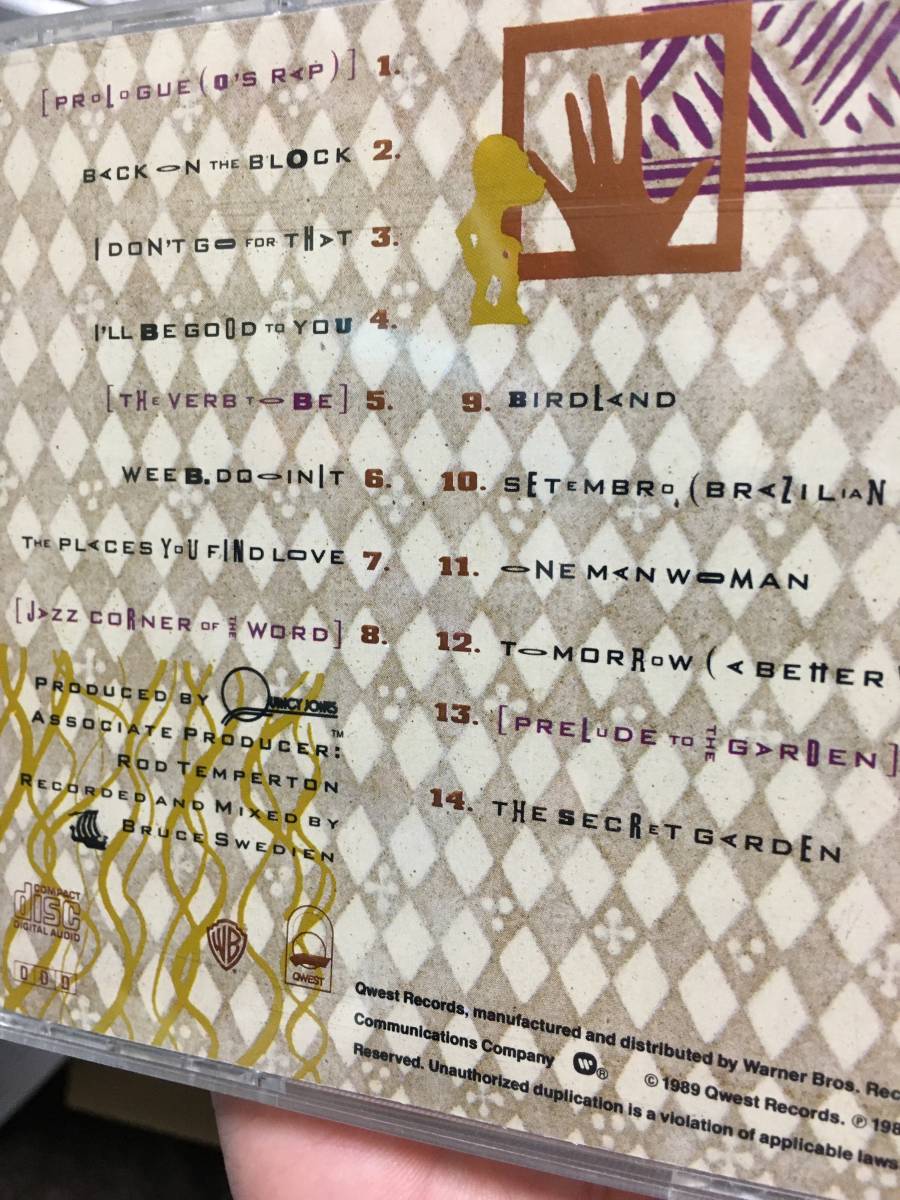 [PROLOGUE (Q'S RAP)] 1.
BACK ON THE BLOCK 2.
I DON'T GO FOR THAT 3.
I'LL BE GOOD TO YOU 4.
[THE VERB TO BE] 5.
WEE B. DOOINIT 6.
THE PLACES YOU FIND LOVE 7.
[JAZZ CORNER OF THE WORD] 8.
9. BIRDLAND
10. SETEMBRO (BRAZILIAN
11. ONE MAN WOMAN
12. TOMORROW (A BETTER
13. [PRELUDE TO THE GARDEN]
14. THE SECRET GARDEN
PRODUCED BY QUINCY JONES
TM
ASSOCIATE PRODUCER:
ROD TEMPERTON
RECORDED AND MIXED BY
BRUCE SWEDIEN
COMPACT
disc
DIGITAL AUDIO
DDD
WB
QWEST
Qwest Records, manufactured and distributed by Warner Bros. Rec
Communications Company W ® © 1989 Qwest Records. ℗ 198
Reserved. Unauthorized duplication is a violation of applicable laws